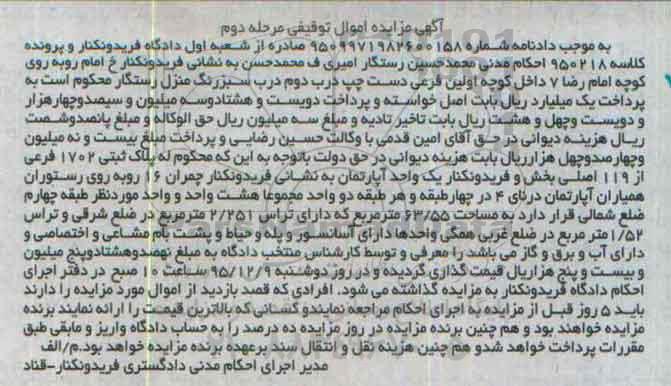 آگهی مزایده اموال توقیفی مرحله دوم
به موجب دادنامه شماره 9509971982600158 صادره از شعبه اول دادگاه فریدونکنار و پرونده
کلاسه 950218 احکام مدنی محمدحسین رستگار امیری ف محمدحسن به نشانی فریدونکنار خ امام روبه روی
کوچه امام رضا 7 داخل کوچه اولین فرعی دست چپ درب دوم درب سبزرنگ منزل رستگار محکوم است به
پرداخت یک میلیارد ریال بابت اصل خواسته و پرداخت دویست و هشتادوسه میلیون و سیصدوچهارهزار
و دویست وچهل و هشت ریال بابت تاخیر تادیه و مبلغ سه میلیون ریال حق الوکاله و مبلغ پانصدوشصت
ریال هزینه دیوانی در حق آقای امین قدمی با وکالت حسین رضایی و پرداخت مبلغ بیست و نه میلیون
وچهارصدوچهل هزارریال بابت هزینه دیوانی در حق دولت باتوجه به این که محکوم له پلاک ثبتی 1702 فرعی
از 119 اصلی بخش و فریدونکنار یک واحد آپارتمان به نشانی فریدونکنار چمران 16 روبه روی رستوران
همیاران آپارتمان درنای 4 در چهارطبقه و هر طبقه دو واحد مجموعا هشت واحد و واحد موردنظر طبقه چهارم
ضلع شمالی قرار دارد به مساحت 63/55 مترمربع که دارای تراس 2/251 مترمربع در ضلع شرقی و تراس
1/52 متر مربع در ضلع غربی همگی واحدها دارای آسانسور و پله و حیاط و پشت بام مشاعی و اختصاصی و
دارای آب و برق و گاز می باشد را معرفی و توسط کارشناس منتخب دادگاه به مبلغ نهصدوهشتادوپنج میلیون
و بیست و پنج هزارریال قیمت گذاری گردیده و در روز دوشنبه 95/12/9 ساعت 10 صبح در دفتر اجرای
احکام دادگاه فریدونکنار به مزایده گذاشته می شود. افرادی که قصد بازدید از اموال مورد مزایده را دارند
باید 5 روز قبل از مزایده به اجرای احکام مراجعه نمایندو کسانی که بالاترین قیمت را ارائه نمایند برنده
مزایده خواهند بود و هم چنین برنده مزایده در روز مزایده ده درصد را به حساب دادگاه واریز و مابقی طبق
مقررات پرداخت خواهد شدو هم چنین هزینه نقل و انتقال سند برعهده برنده مزایده خواهد بود.م/الف
مدیر اجرای احکام مدنی دادگستری فریدونکنار-قناد